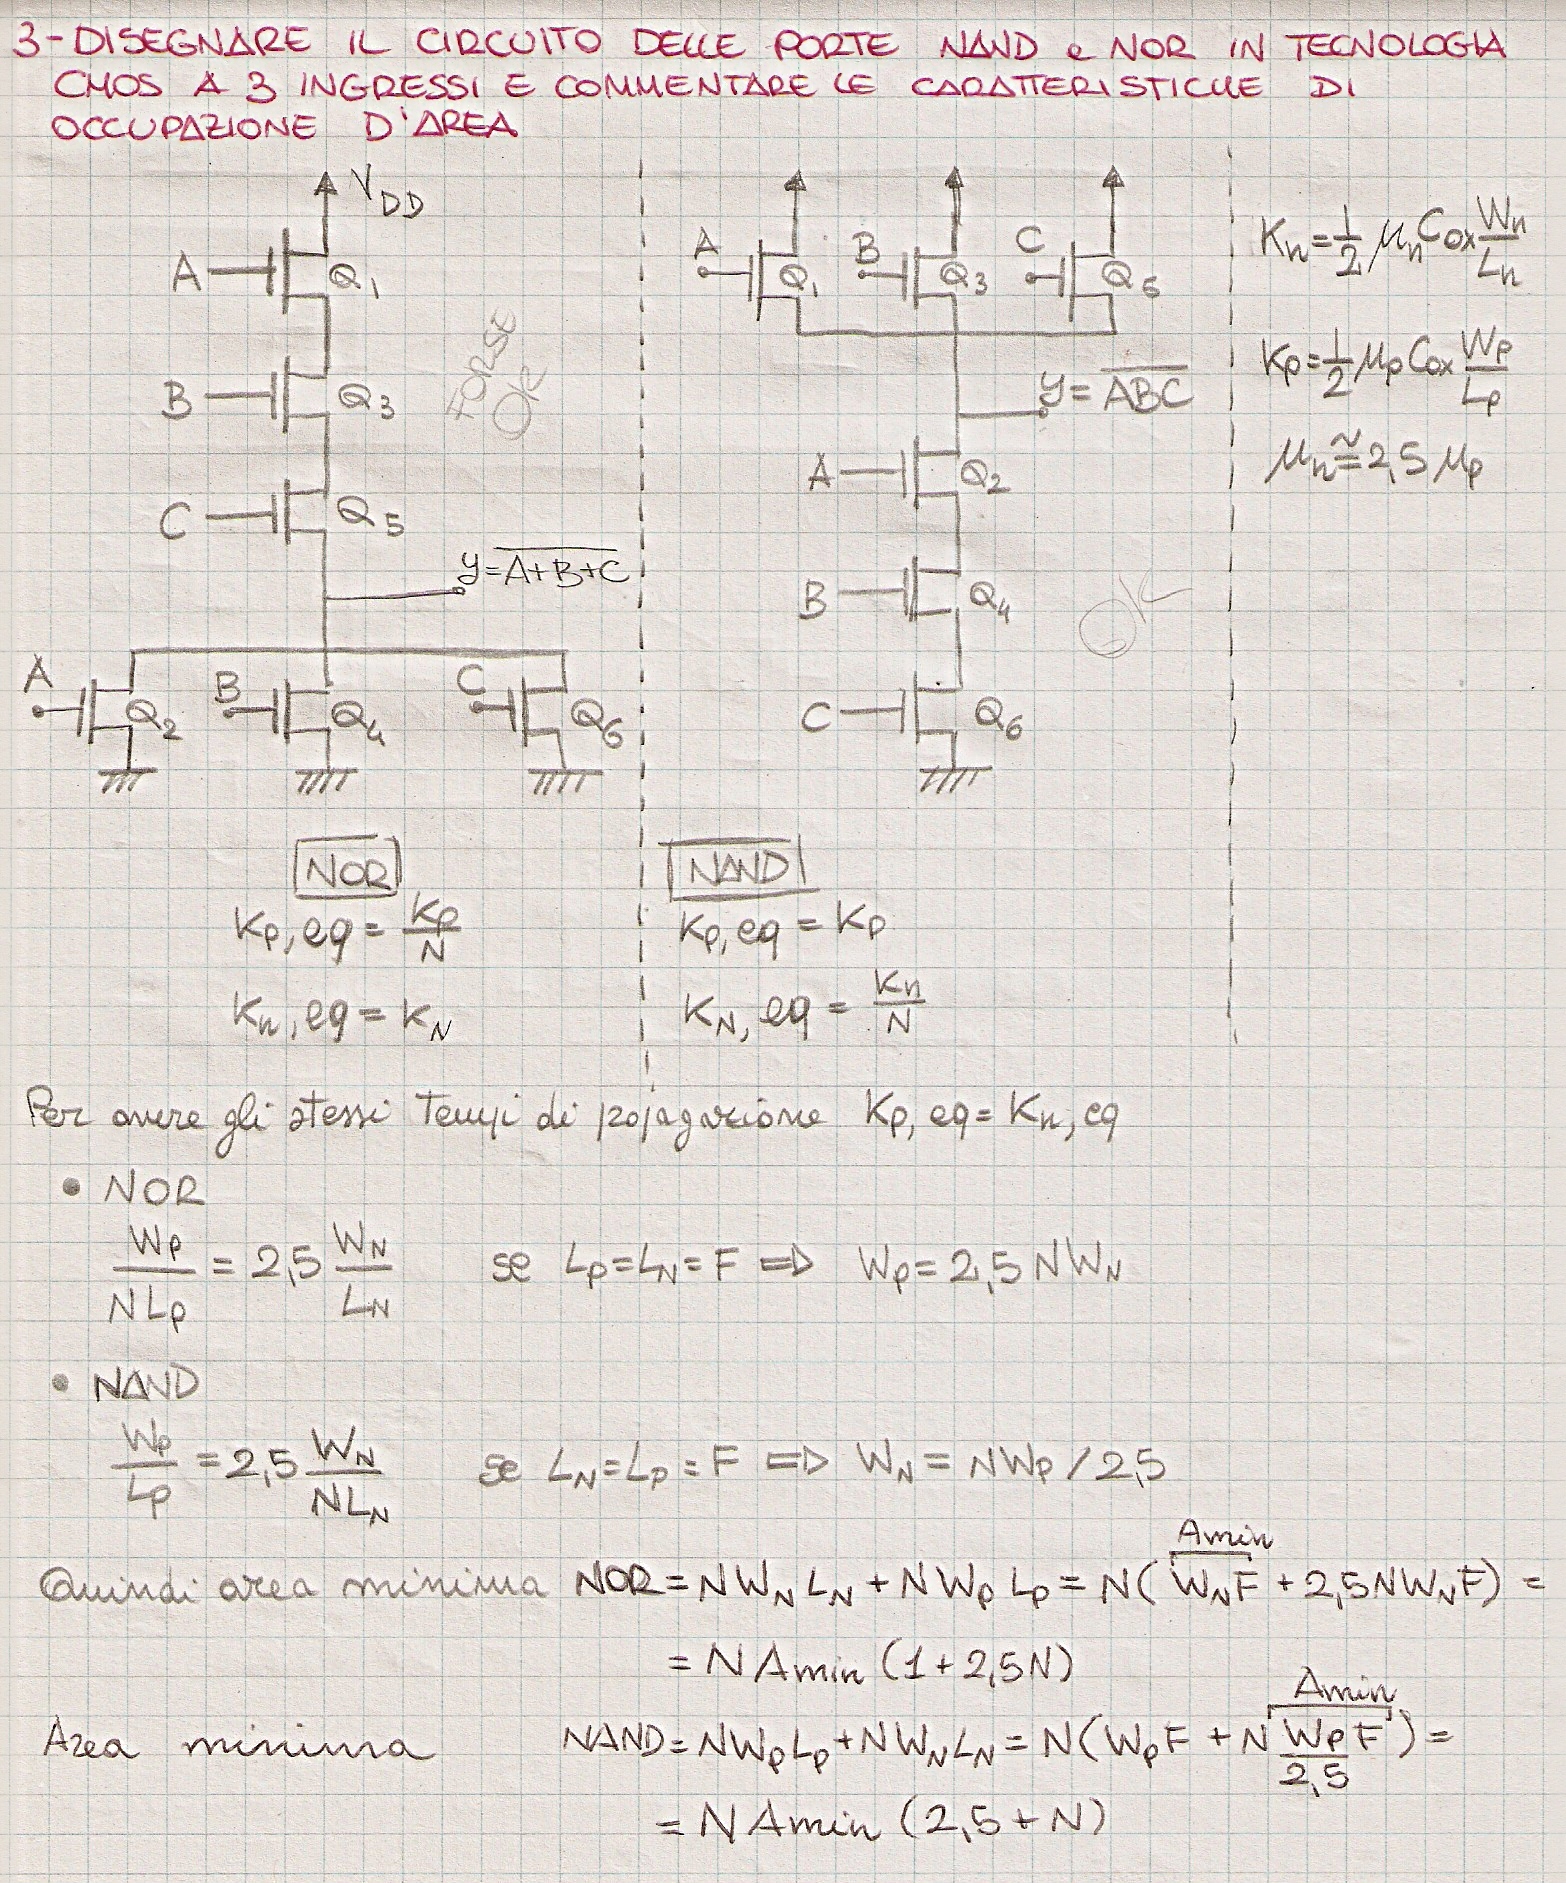 3-DISEGNARE IL CIRCUITO DELLE PORTE NAND e NOR IN TECNOLOGIA
CMOS A 3 INGRESSI E COMMENTARE LE CARATTERISTICHE DI
OCCUPAZIONE D'AREA
VDD
A Q1
B Q3
C Q5
FORSE
OK
y=\overline{A+B+C}
A Q2 B Q4 C Q6
A Q1 B Q3 C Q5
y=\overline{ABC}
A Q2
B Q4
C Q6
OK
Kn=1/2 μn Cox Wn/Ln
Kp=1/2 μp Cox Wp/Lp
μn≅2,5 μp
NOR
Kp,eq = Kp/N
Kn,eq = KN
NAND
Kp,eq = Kp
KN,eq = Kn/N
Per avere gli stessi tempi di popagazione Kp,eq = Kn,eq
• NOR
Wp/NLp = 2,5 WN/LN se Lp=LN=F ⇒ Wp=2,5NWN
• NAND
Wp/Lp = 2,5 WN/NLN se LN=Lp=F ⇒ WN=NWp/2,5
Quindi area minima NOR = NWNLN + NWpLp = N(WNF + 2,5NWNF) =
Amin
= N Amin (1+2,5N)
Area minima NAND = NWpLp + NWNLN = N(WpF + N WpF/2,5) =
Amin
= N Amin (2,5+N)